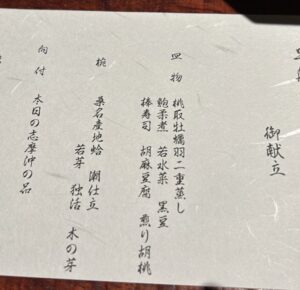 御献立
皿物
桃取牡蠣羽二重蒸し
鮑柔煮　若水菜　黒豆
棒寿司　胡麻豆腐　煎り胡桃
椀
桑名産地蛤　潮仕立
若芽　独活　木の芽
向付
本日の志摩沖の品